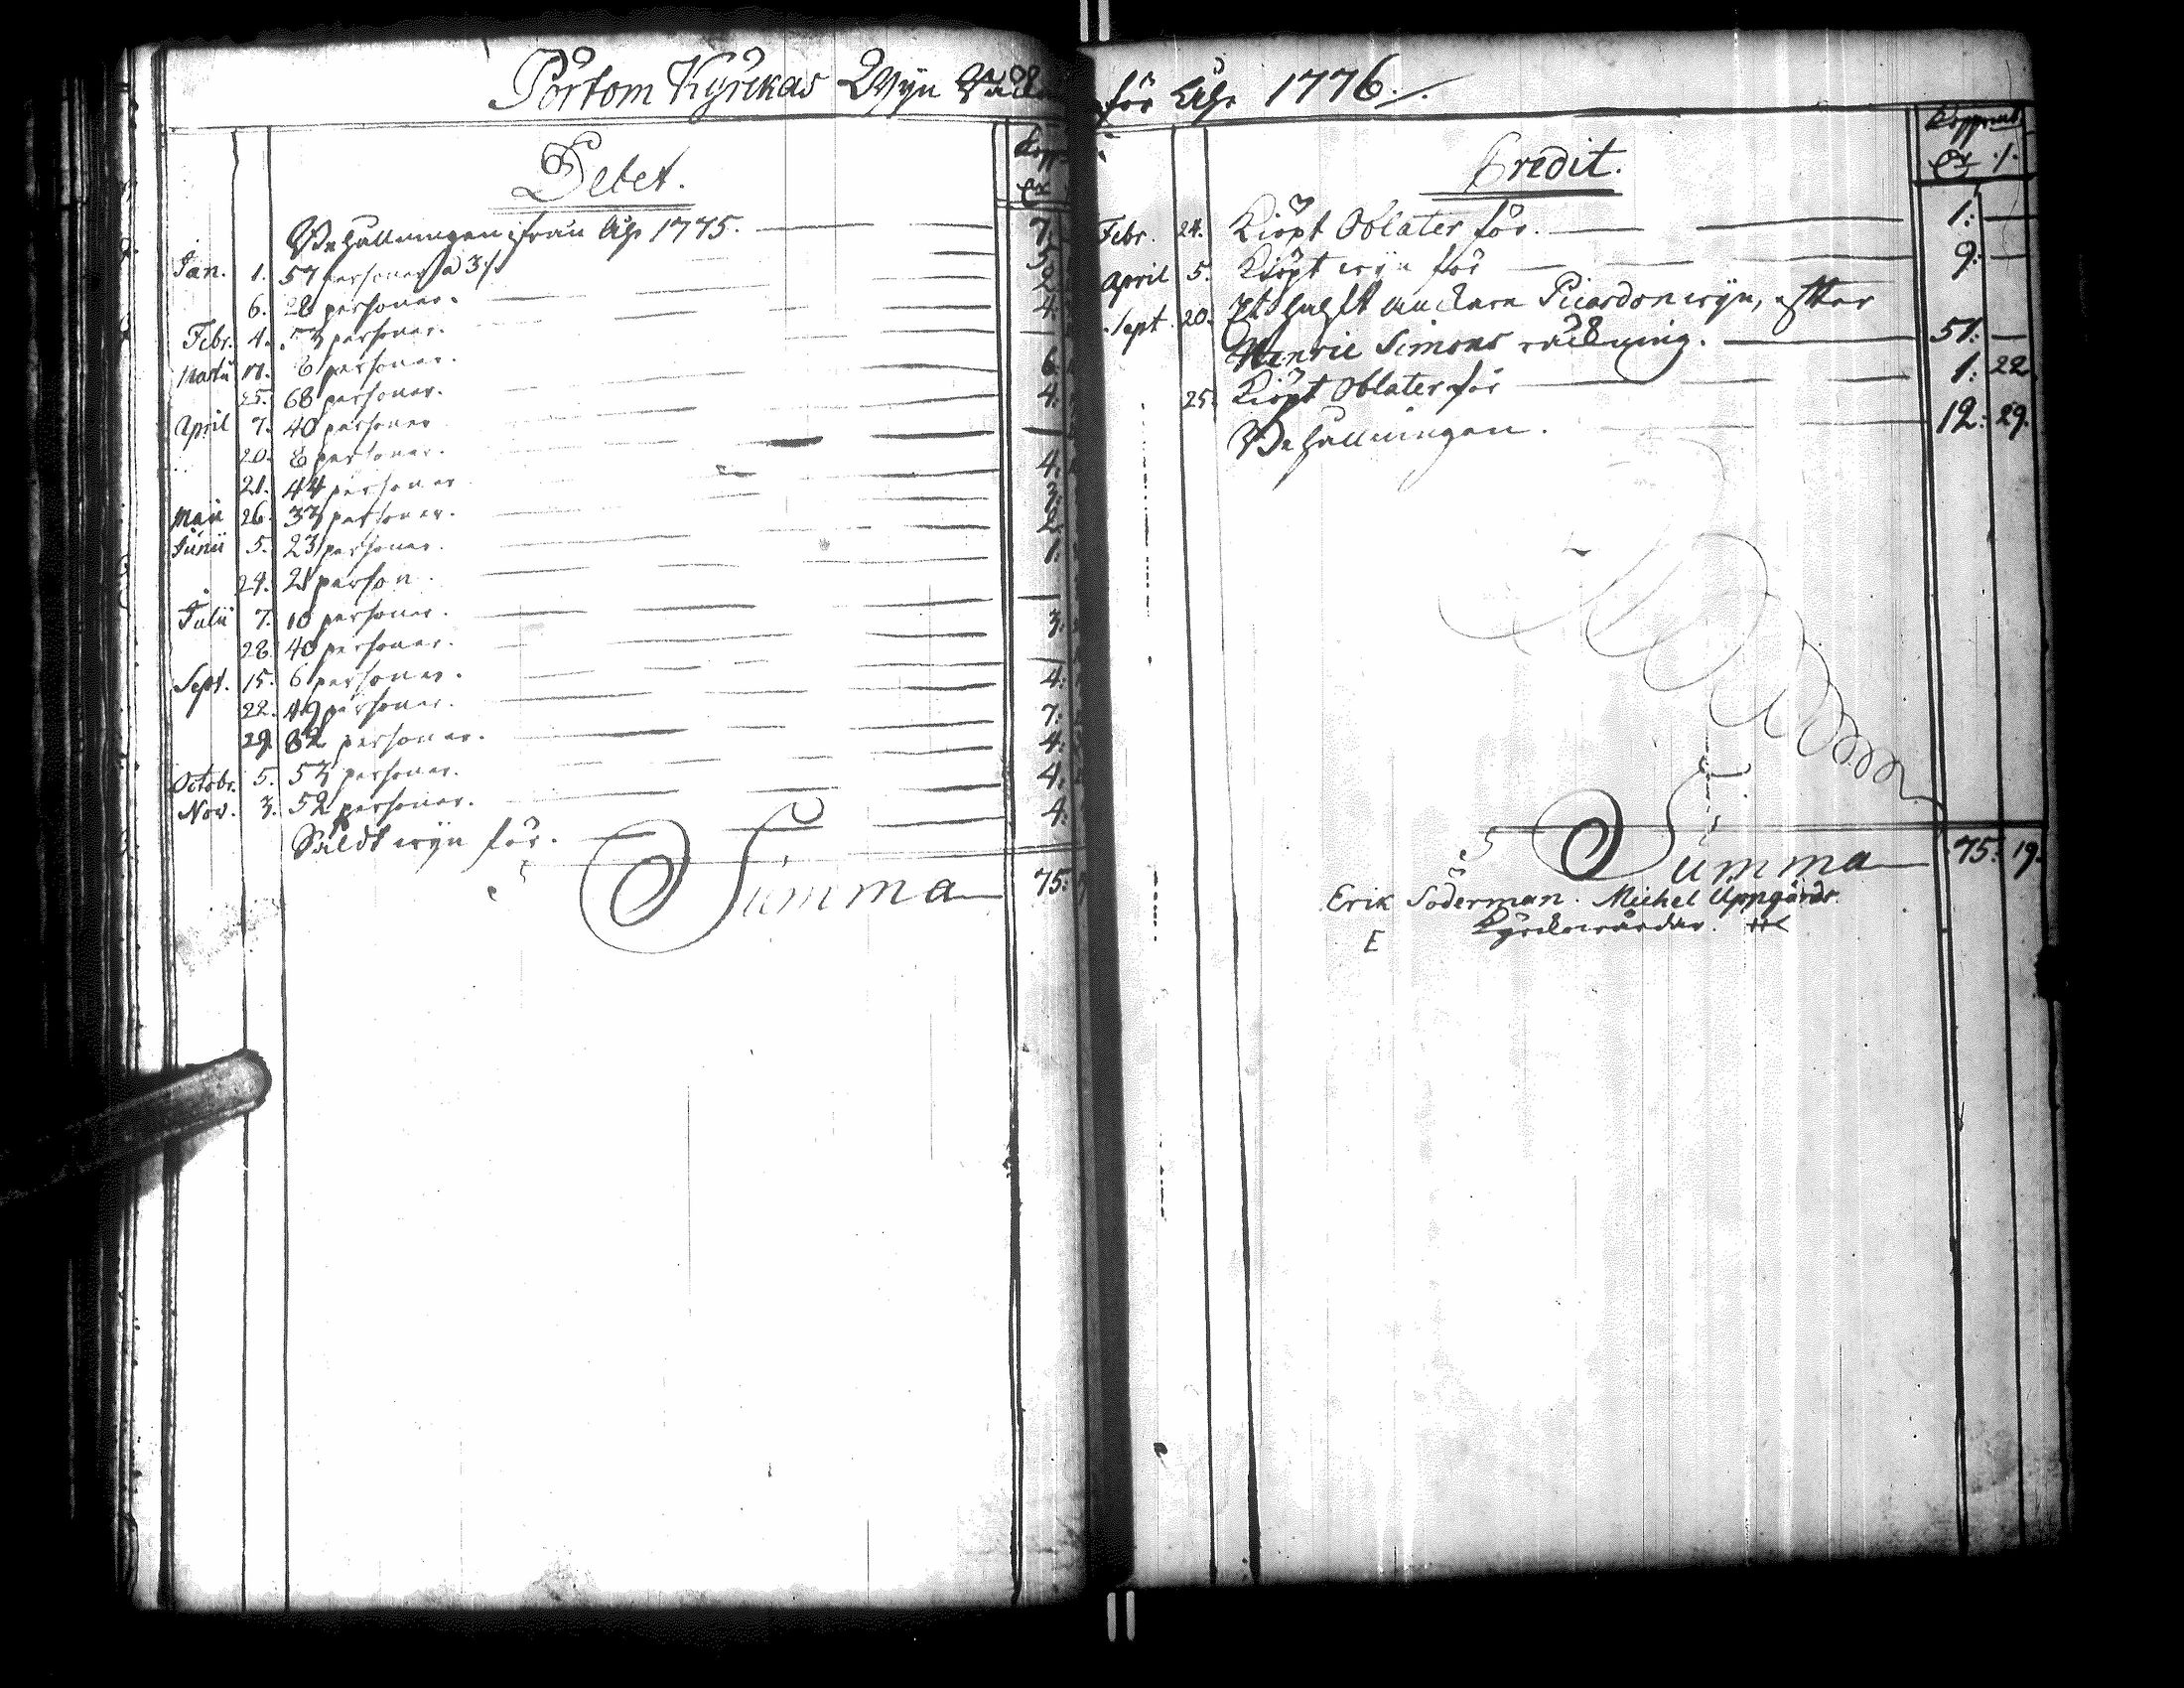 Pörtom Kyrckas Wijn Räck
för Åhr 1776./.
Debet.
Kopp
Behållningen ifrån Åhr 1775. 7.
Jan. 1. 57 personer ad 3/. 5
6. 28 personer. 2
Febr. 4. 53 personer. 4.
Martii 17. 6 personer. —
25. 68 personer. 6.
April 7. 40 personer 4.
20. 8 personer. —
21. 44 personer 4.
Maii 26. 33 personer. 3.
Junii 5. 23 personer. 2.
24. 21 person. 1.
Julii 7. 10 personer. —
28. 40 personer. 3.
Sept. 15. 6 personer. —
22. 49 personer. 4.
29. 82 personer. 7.
Octobr. 5. 53 personer. 4.
Nov. 3. 52 personer. 4.
Såldt wijn för. 4.
Summa 75.
Credit.
Kopparmt.
Febr. 24. Kiöpt Oblater för. 1: —
April 5. Kiöpt wijn för 9: —
Sept. 20. Ankare Picardon wijn, efter
Henric Simons räckning. 51: —
25. Kiöpt Oblater för 1: 22.
Behållningen. 12: 29.
Summa 75: 19.
Erik Söderman. Michel Uppgårds.
E Kyrckowärdar.